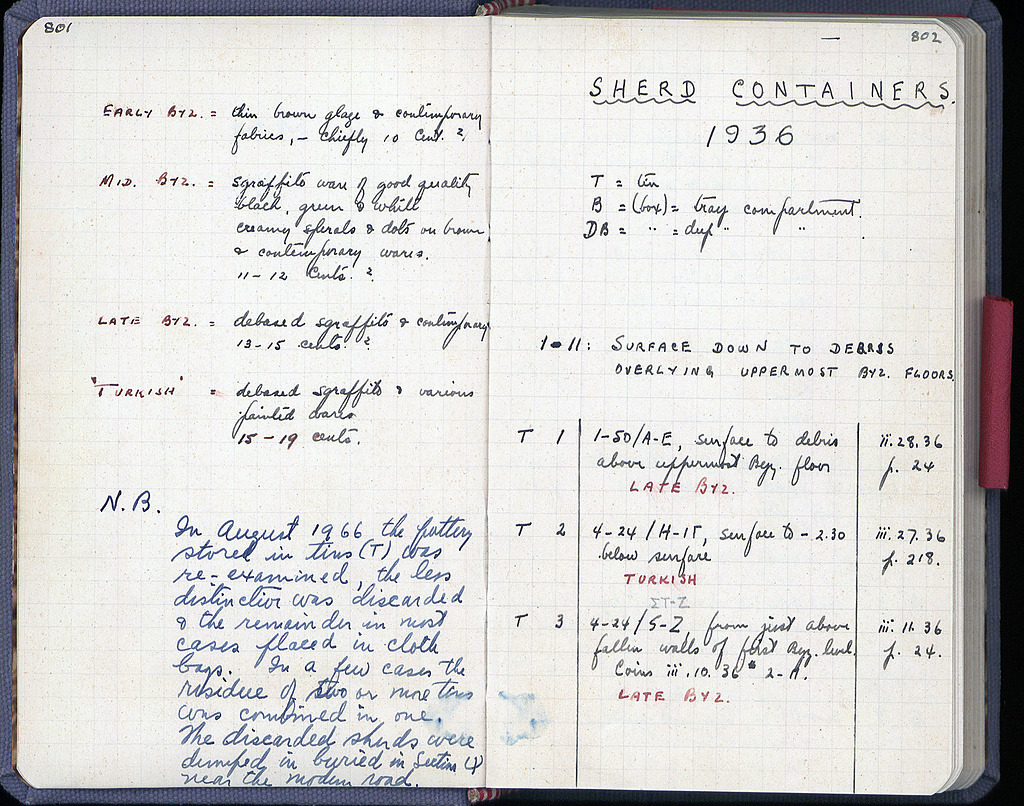 801
EARLY BYZ. = thin brown glaze & contemporary
fabrics, – chiefly 10 Cent. ?
MID. BYZ. = sgraffito ware of good quality
black, green & white
creamy spirals & dots on brown
& contemporary wares.
11–12 Cents. ?
LATE BYZ. = debased sgraffito & contemporary
13–15 cents. ?
'TURKISH' = debased sgraffito & various
painted wares
15–19 cents.
N.B.
In August 1966 the pottery
stored in tins (T) was
re-examined, the less
distinctive was discarded
& the remainder in most
cases placed in cloth
bags. In a few cases the
residue of two or more tins
was combined in one.
The discarded sherds were
dumped in buried in Section
near the modern road.
802
SHERD CONTAINERS.
1936
T = tin
B = (box) = tray compartment.
DB = " = deep " "
1–11: SURFACE DOWN TO DEBRIS
OVERLYING UPPERMOST BYZ. FLOORS.
T 1 1–50/A–E, surface to debris ii.28.36
above uppermost Byz. floor p. 24
LATE BYZ.
T 2 4–24/H–IT, surface to –2.30 iii.27.36
below surface p. 218.
TURKISH
ΣT–Z
T 3 4–24/S–Z from just above iii.11.36
fallen walls of first Byz. level. p. 24.
Coins iii.10.36 2–11.
LATE BYZ.